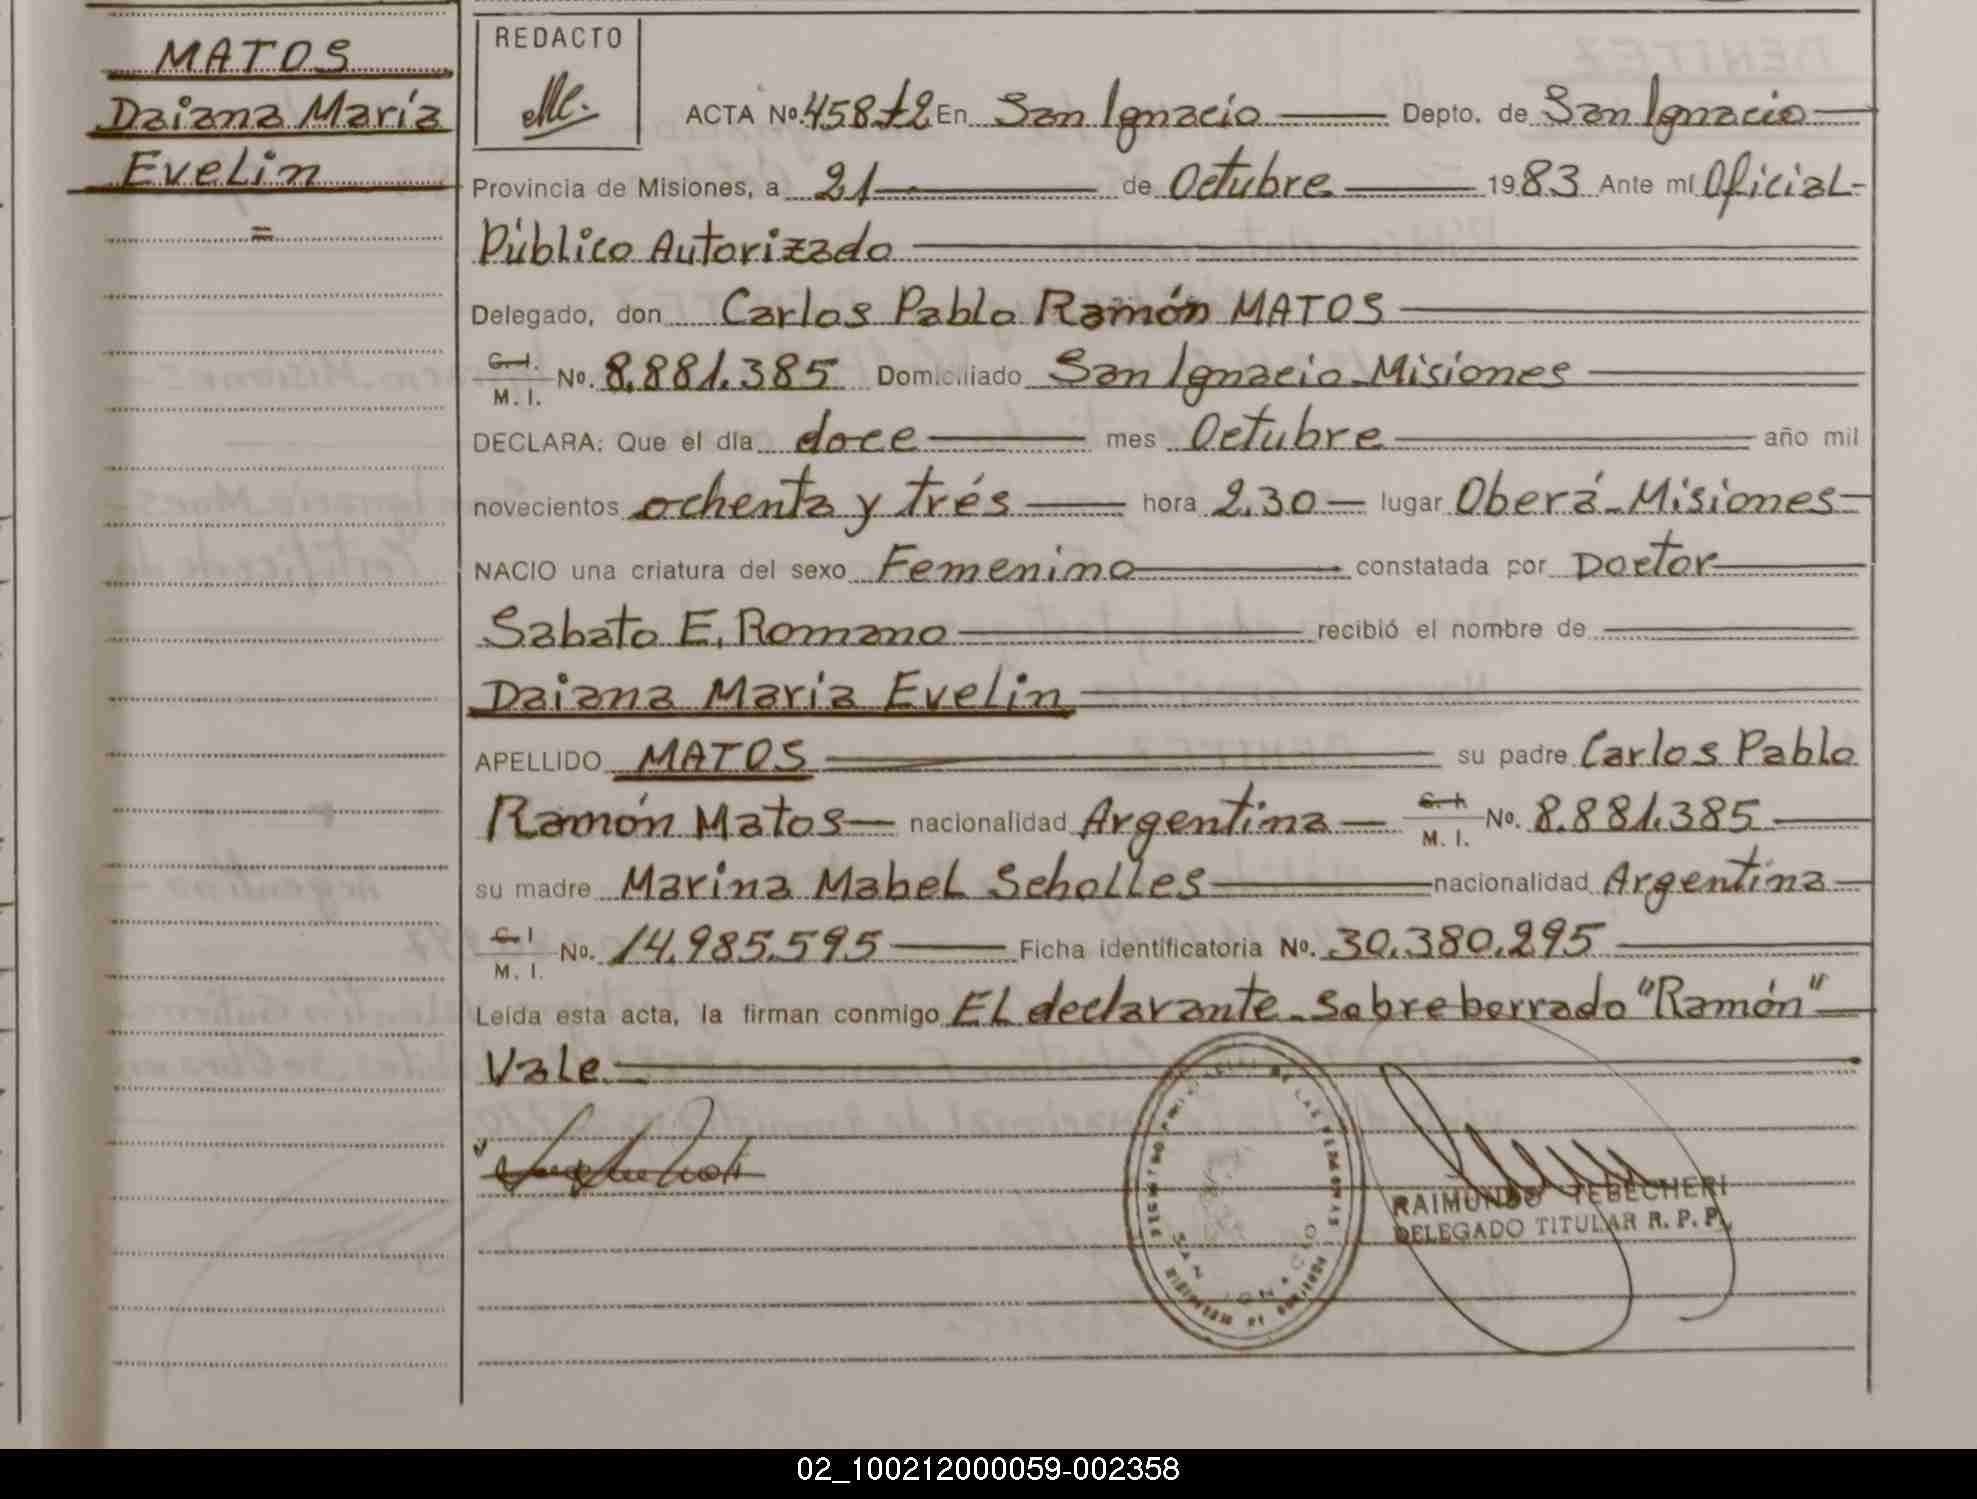 MATOS
Daiana María
Evelin
=
REDACTO
ACTA Nº 458 T2 En San Ignacio Depto. de San Ignacio
Provincia de Misiones, a 21 de Octubre 1983 Ante mí Oficial
Público Autorizado
Delegado, don Carlos Pablo Ramón MATOS
C. I.
M. I. Nº. 8.881.385 Domiciliado San Ignacio - Misiones
DECLARA: Que el día doce mes Octubre año mil
novecientos ochenta y trés hora 2.30 lugar Oberá - Misiones
NACIO una criatura del sexo Femenino constatada por Doctor
Sabato E. Romano recibió el nombre de
Daiana María Evelin
APELLIDO MATOS su padre Carlos Pablo
Ramón Matos nacionalidad Argentina C. I. M. I. Nº. 8.881.385
su madre Marina Mabel Scholles nacionalidad Argentina
C. I.
M. I. Nº. 14.985.595 Ficha identificatoria Nº. 30.380.295
Leída esta acta, la firman conmigo El declarante - Sobreborrado "Ramón"
Vale.
SAN IGNACIO
RAIMUNDO TEBECHERI
DELEGADO TITULAR R. P. P.
02_100212000059-002358